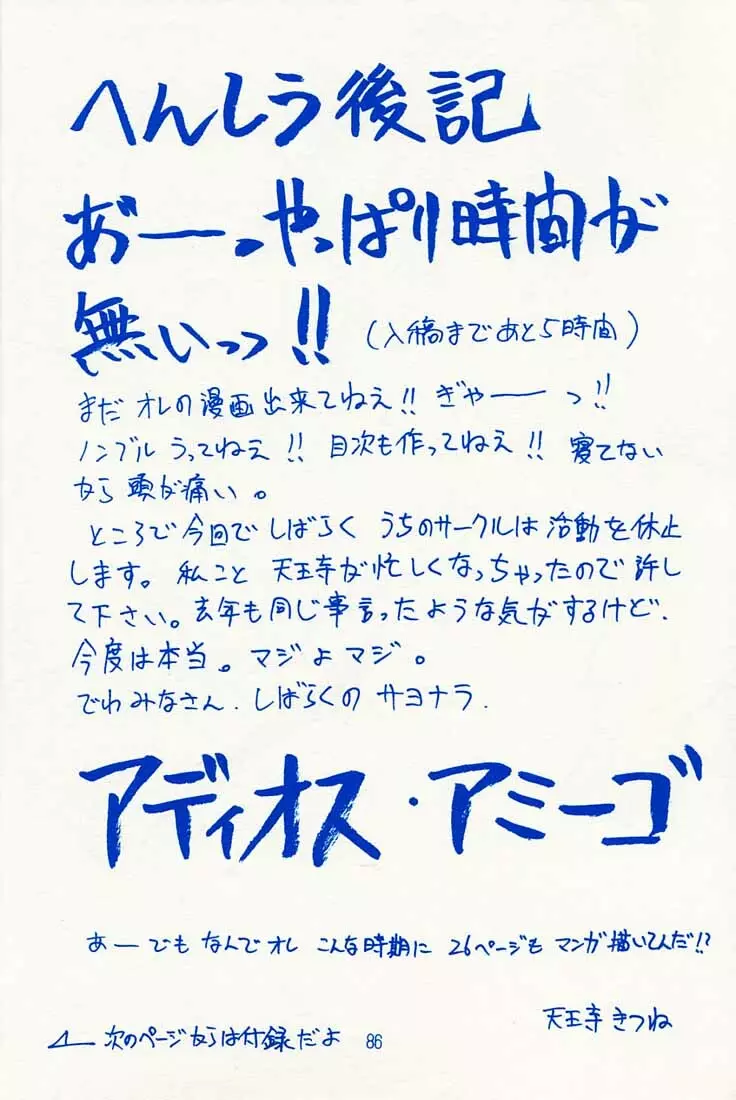 へんしう後記
あ゙ーっやっぱり時間が
無いっっ!!(入稿まであと5時間)
まだオレの漫画出来てねえ!!ぎゃーーっ!!
ノンブルうってねえ!!目次も作ってねえ!!寝てない
から頭が痛い。
ところで今回でしばらくうちのサークルは活動を休止
します。私こと天王寺が忙しくなっちゃったので許し
て下さい。去年も同じ事言ったような気がするけど、
今度は本当。マジよマジ。
でわみなさん、しばらくのサヨナラ.
アディオス・アミーゴ
あーでもなんでオレこんな時期に26ページもマンガ描いてんだ!?
天王寺きつね
次のページからは付録だよ
86